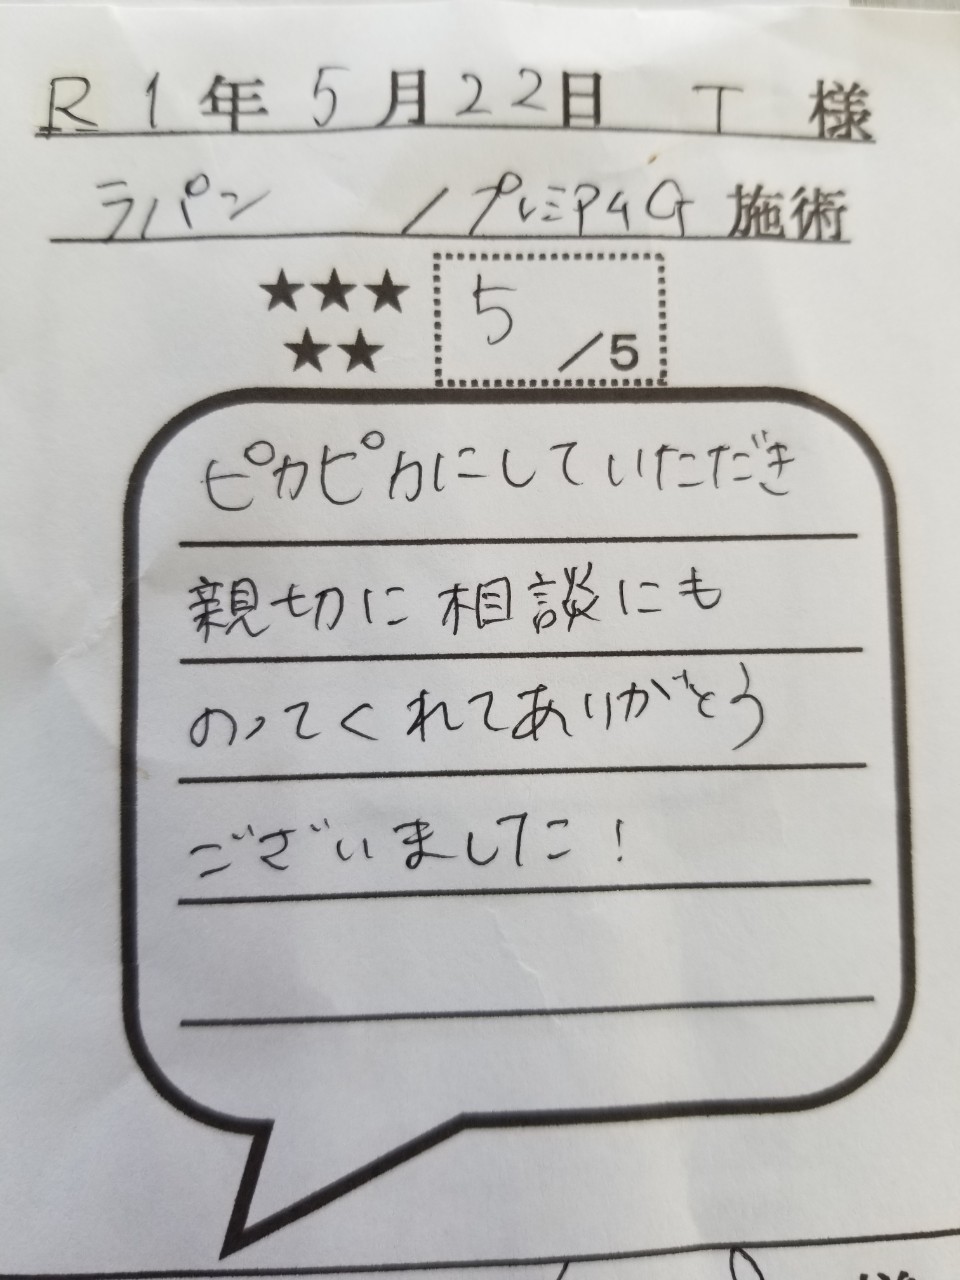 R 1年 5月22日 T 様
ラパン /プレミアムG 施術
★★★
★★
5 /5
ピカピカにしていただき
親切に相談にも
のってくれてありがとう
ございました!